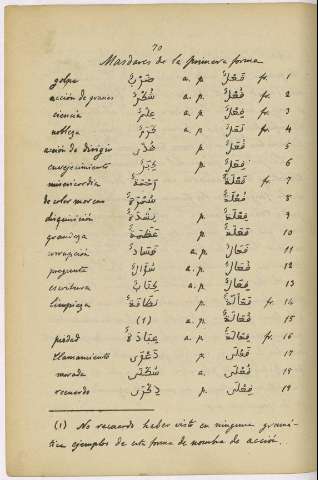 70
Masdares de la primera forma
golpe ضَرْبٌ a. p. فَعْلٌ fr. 1
acción de gracias شُكْرٌ a. p. فُعْلٌ fr. 2
ciencia عِلْمٌ a. p. فِعْلٌ fr. 3
nobleza كَرَمٌ a. p. فَعَلٌ fr. 4
acción de dirigir هُدًى p. فُعَلٌ 5
envejecimiento كِبَرٌ p. فِعَلٌ 6
misericordia رَحْمَةٌ فَعْلَةٌ fr. 7
de color moreno سُمْرَةٌ فُعْلَةٌ 8
disquisición نِشْدَةٌ p. فِعْلَةٌ 9
grandeza عَظَمَةٌ p. فَعَلَةٌ 10
corrupción فَسَادٌ a. p. فَعَالٌ 11
pregunta سُؤَالٌ a. p. فُعَالٌ 12
escritura كِتَابٌ a. p. فِعَالٌ 13
limpieza نَظَافَةٌ p. فَعَالَةٌ fr. 14
(1) a. p. فُعَالَةٌ 15
piedad عِبَادَةٌ a. p. فِعَالَةٌ fr. 16
llamamiento دَعْوَى p. فَعْلَى 17
morada سُكْنَى a. p. فُعْلَى 18
recuerdo ذِكْرَى p. فِعْلَى 19
(1) No recuerdo haber visto en ninguna gramá-
tica ejemplos de esta forma de nombre de acción.